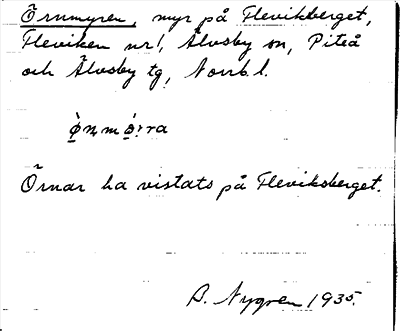 Örnmyren, myr på Flevikberget,
Fleviken nr 1, Älvsby sn, Piteå
och Älvsby tg, Norrb. l.
Örnar ha vistats på Fleviksberget.
A. Nygren 1935.